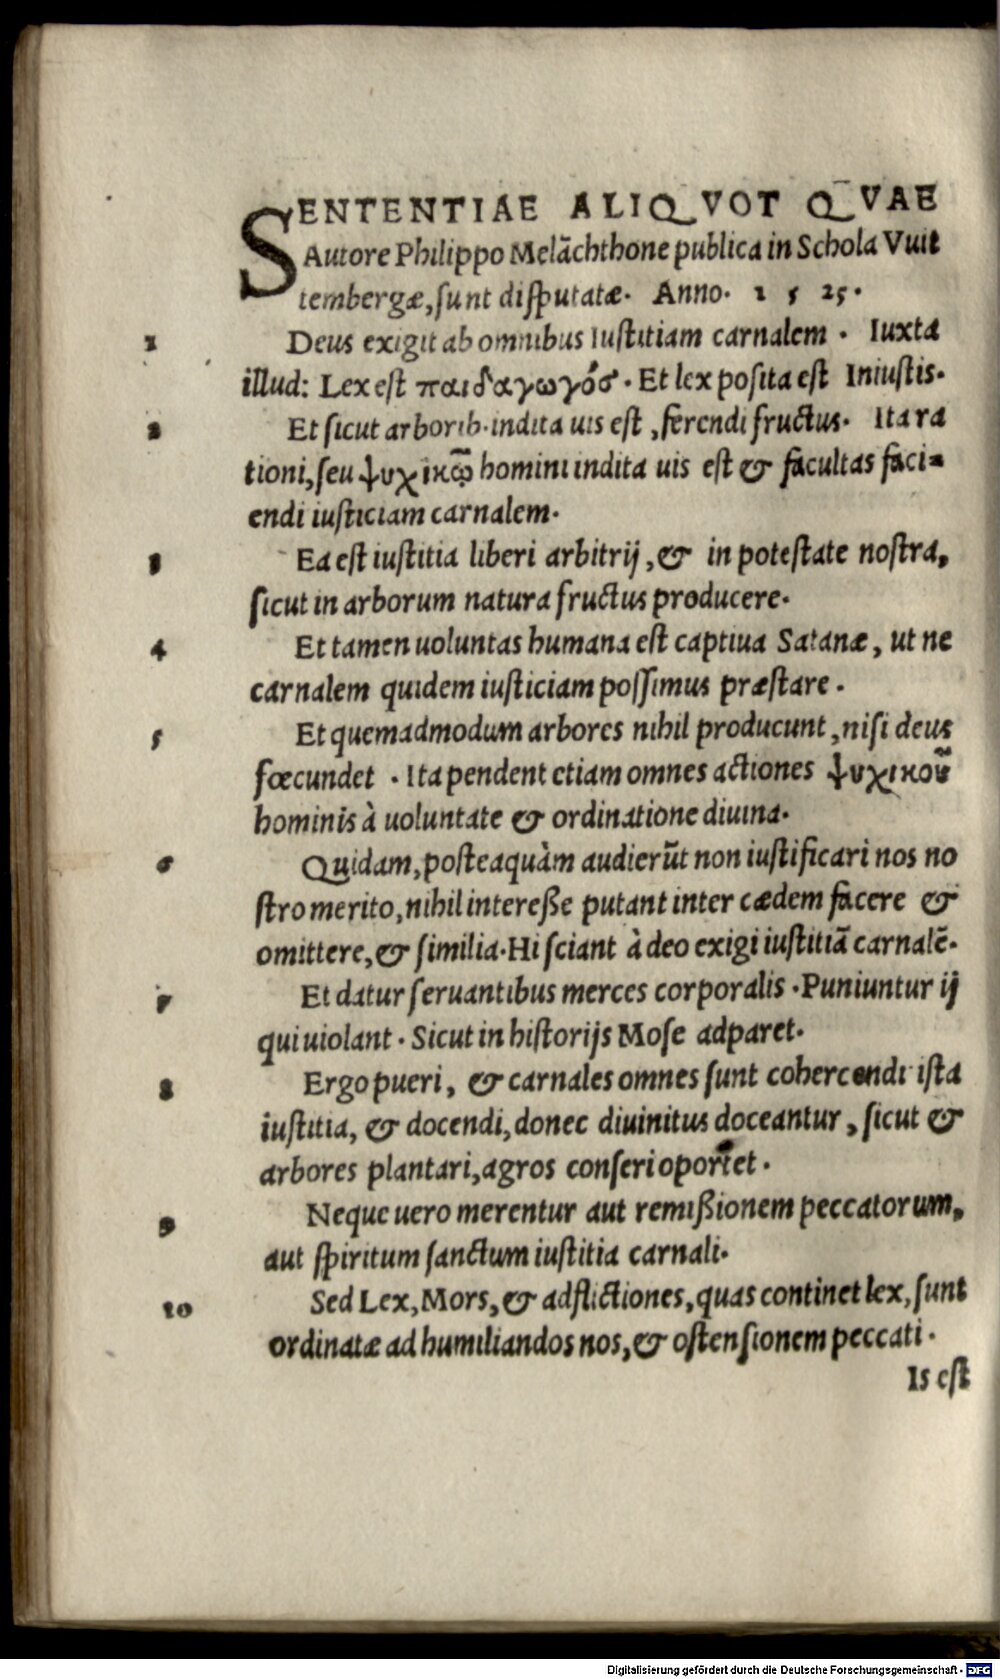 SENTENTIAE ALIQVOT QVAE
Autore Philippo Melāchthone publica in Schola Vuit
tembergæ, sunt disputatæ. Anno. 1 5 25.
1 Deus exigit ab omnibus Iustitiam carnalem. Iuxta
illud: Lex est παιδαγωγός. Et lex posita est Iniustis.
2 Et sicut arborib. indita uis est, ferendi fructus. Ita ra
tioni, seu ψυχικῶ homini indita uis est & facultas faci-
endi iusticiam carnalem.
3 Ea est iustitia liberi arbitrij, & in potestate nostra,
sicut in arborum natura fructus producere.
4 Et tamen uoluntas humana est captiua Satanæ, ut ne
carnalem quidem iusticiam possimus præstare.
5 Et quemadmodum arbores nihil producunt, nisi deus
fœcundet. Ita pendent etiam omnes actiones ψυχικοῦ
hominis à uoluntate & ordinatione diuina.
6 Quidam, posteaquàm audierūt non iustificari nos no
stro merito, nihil interesse putant inter cædem facere &
omittere, & similia. Hi sciant à deo exigi iustitiā carnalē.
7 Et datur seruantibus merces corporalis. Puniuntur ij
qui uiolant. Sicut in historijs Mose adparet.
8 Ergo pueri, & carnales omnes sunt cohercendi ista
iustitia, & docendi, donec diuinitus doceantur, sicut &
arbores plantari, agros conseri oportet.
9 Neque uero merentur aut remißionem peccatorum,
aut spiritum sanctum iustitia carnali.
10 Sed Lex, Mors, & adflictiones, quas continet lex, sunt
ordinatæ ad humiliandos nos, & ostensionem peccati.
Is est
Digitalisierung gefördert durch die Deutsche Forschungsgemeinschaft - DFG